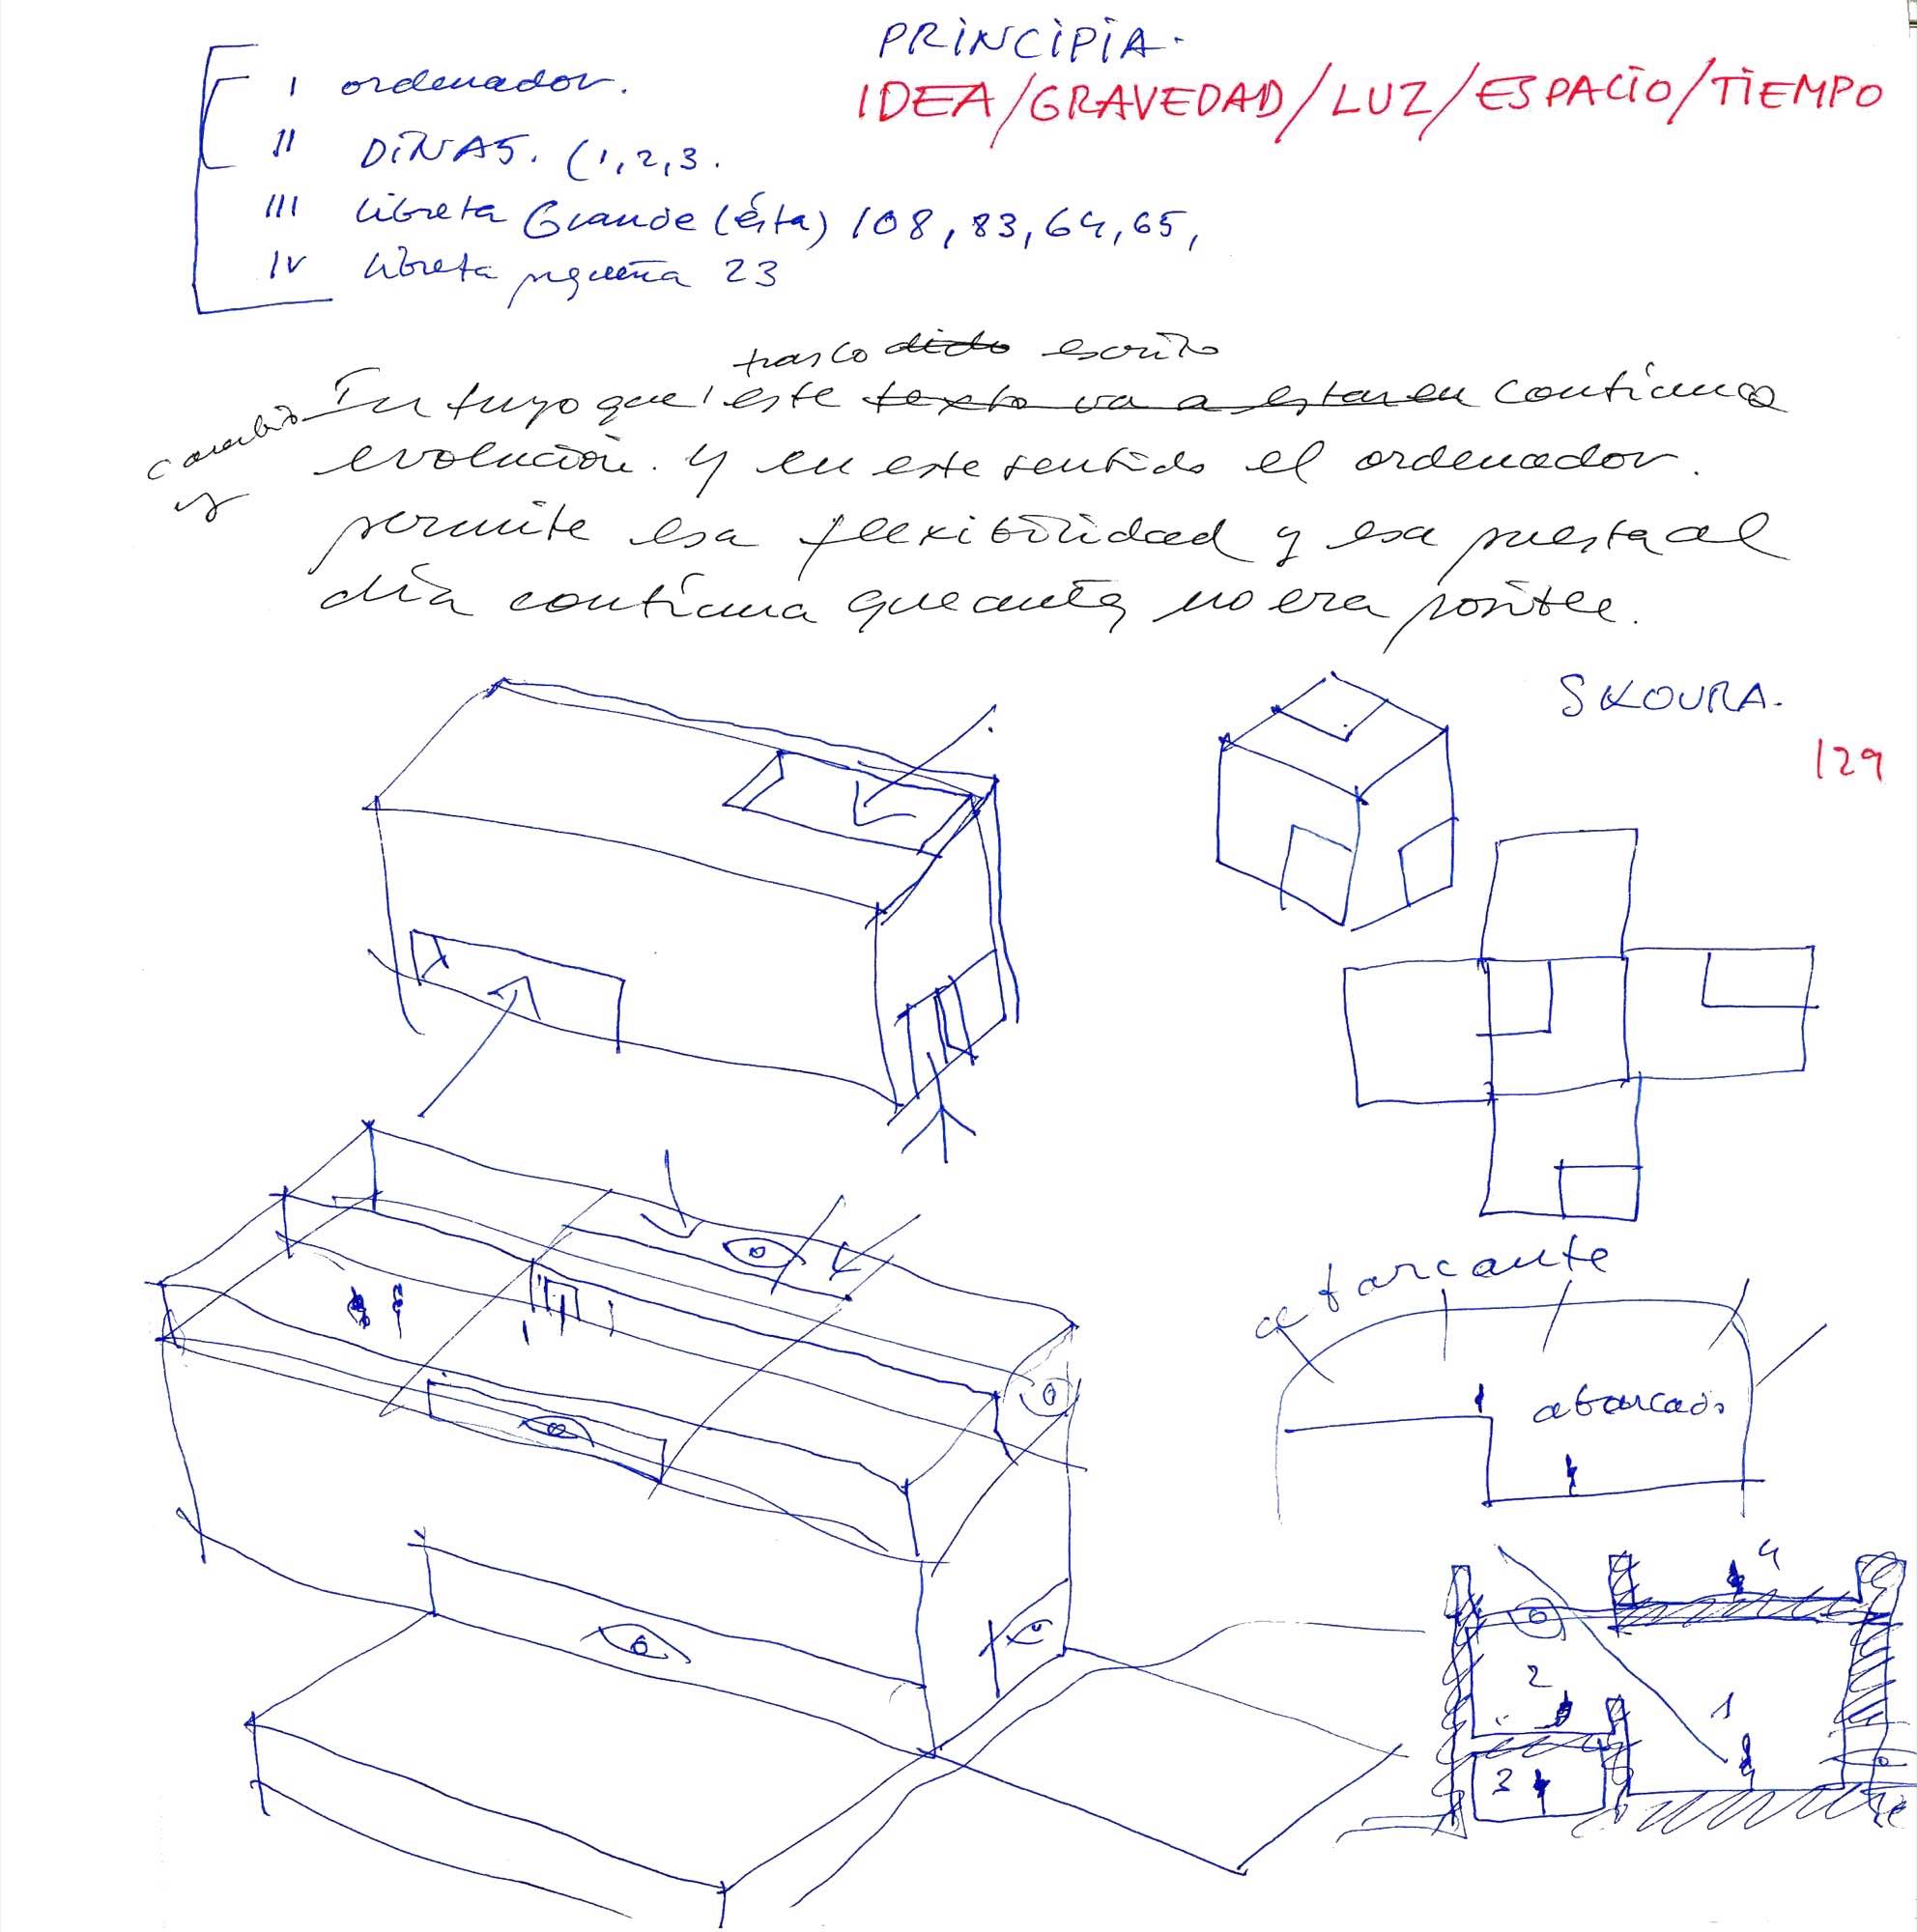 PRiNCiPiA.
IDEA/GRAVEDAD/LUZ/ESPACiO/TiEMPO
I ordenador.
II DiNA5. (1,2,3.
III libreta Grande (ésta) 108, 83, 64, 65,
IV libreta pequeña 23
dicto escrito
Intuyo que este texto va a estar en continua
cambio y
evolución. Y en este sentido el ordenador.
permite esa flexibilidad y esa puesta al
día continua que antes no era posible.
SKOURA.
129
abarcante
abarcado
4
2
1
3